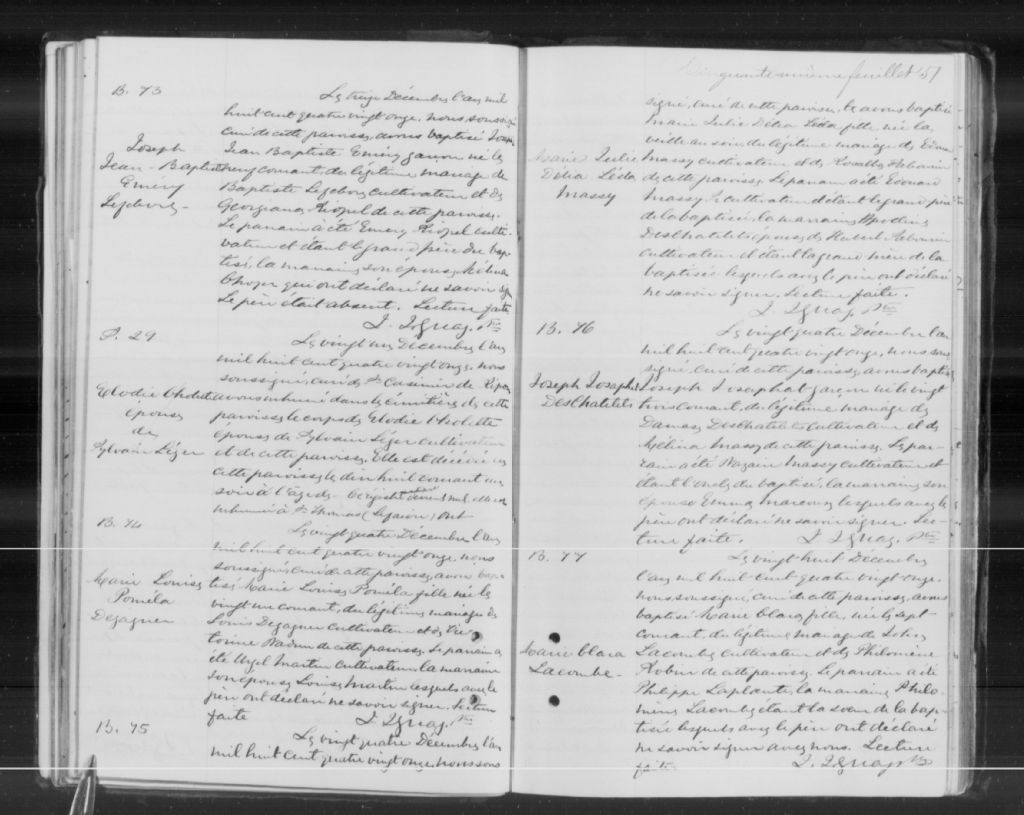 B. 73
Joseph
Jean-Baptiste
Emery
Lefebvre
Le treize Décembre l'an mil
huit cent quatre vingt onze, nous, soussigné
curé de cette paroisse, avons baptisé Joseph
Jean Baptiste Emery garçon né le
treize courant, du légitime mariage de
Baptiste Lefebvre cultivateur et de
Georgiana Riopel de cette paroisse.
Le parrain a été Emery Riopel culti-
vateur et étant le grand père du bap-
tisé, la marraine son épouse
qui ont déclaré ne savoir signer
Le père était absent. Lecture faite
Ptre
S. 29
Elodie Cholette
épouse
de
Sylvain Léger
Le vingt un Décembre l'an
mil huit cent quatre vingt onze, nous
soussigné, curé de St Casimir de Ripon
avons inhumé dans le cimetière de cette
paroisse le corps de Elodie Cholette
épouse de Sylvain Léger cultivateur
et de cette paroisse. Elle est décédée en
cette paroisse le dix huit courant au
soir à l'âge de
inhumée à St Thomas
B. 74
Marie Louise
Poméla
Dezagner
Le vingt quatre Décembre l'an
mil huit cent quatre vingt onze, nous
soussigné, curé de cette paroisse, avons bap-
tisé Marie Louise Poméla fille née le
vingt un courant, du légitime mariage de
Louis Dezagner cultivateur et de Vic-
torine Nadon de cette paroisse. Le parrain a
été Urgel Martin cultivateur la marraine
son épouse Louise Martin lesquels avec le
père ont déclaré ne savoir signer. Lecture
faite
Ptre
B. 75
Le vingt quatre Décembre l'an
mil huit cent quatre vingt onze, nous sous
Cinquante unième feuillet 51
Marie Julie
Délia Léda
Massy
signé, curé de cette paroisse, avons baptisé
Marie Julie Délia Léda fille née la
veille au soir du légitime mariage de Edouard
Massy cultivateur et de Rosalba
de cette paroisse. Le parrain a été Edouard
Massy cultivateur étant le grand père
de la baptisée, la marraine
DesChatelets épouse de Hubert
cultivateur et étant la grand mère de la
baptisée lesquels avec le père ont déclaré
ne savoir signer. Lecture faite.
Ptre
B. 76
Joseph Josaphat
DesChatelets
Le vingt quatre Décembre l'an
mil huit cent quatre vingt onze, nous sous
signé curé de cette paroisse, avons baptisé
Joseph Josaphat garçon né le vingt
trois courant, du légitime mariage de
Damas DesChatelets cultivateur et de
Mélina Massy de cette paroisse. Le par-
rain a été Nazaire Massy cultivateur et
étant l'oncle du baptisé, la marraine son
épouse Emma lesquels avec le
père ont déclaré ne savoir signer. Lec-
ture faite. Ptre
B. 77
Marie Clara
Lacombe
Le vingt huit Décembre
l'an mil huit cent quatre vingt onze,
nous soussigné, curé de cette paroisse, avons
baptisé Marie Clara fille, née le sept
courant du légitime mariage de
Lacombe cultivateur et de Philomène
Robin de cette paroisse. Le parrain a été
Philippe Laplante, la marraine Philo-
mène Lacombe étant la soeur de la bap-
tisée lesquels avec le père ont déclaré
ne savoir signer avec nous. Lecture
faite Ptre